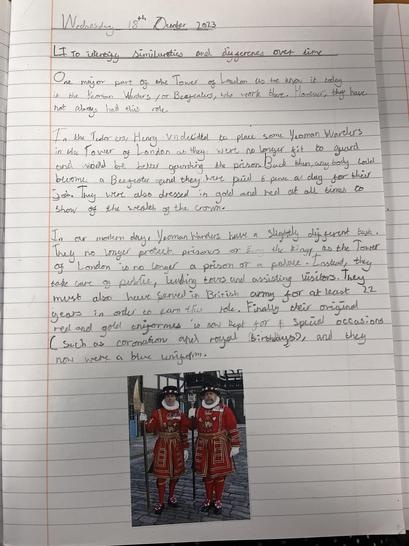 Wednesday 18th October 2023
LI To identify similarities and difference over time
One major part of the Tower of London as we know it today
is the Yeoman Warders (or Beefeaters) who work there. However, they have
not always had this role.
In the Tudor era Henry VIII decided to place some Yeoman Warders
in the Tower of London as they were no longer fit to guard
and would be better guarding the prison. Back then, anybody could
become a Beefeater and they were paid 6 pence a day for their
job. They were also dressed in gold and red at all times to
show of the wealth of the crown.
In our modern day, Yeoman Warders have a slightly different task.
They no longer protect prisoners or the king, as the Tower
of London is no longer a prison or a palace. Instead, they
take care of public, leading tours and assisting visitors. They
must also have served in British army for at least 22
years in order to earn this role. Finally their original
red and gold uniforms is now kept for special occasions
(such as coronation and royal birthdays), and they
now were a blue uniform.